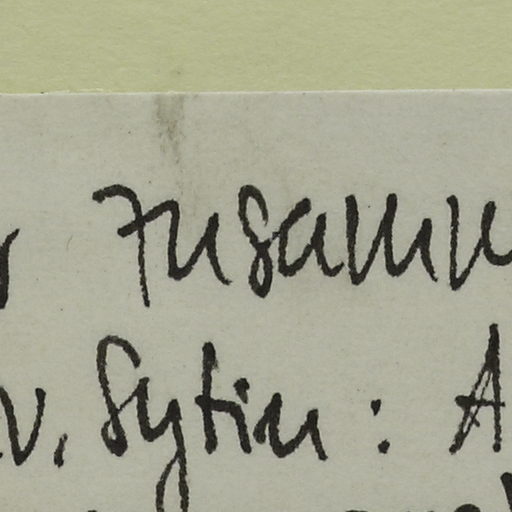 zusamm
v. Sytin : A